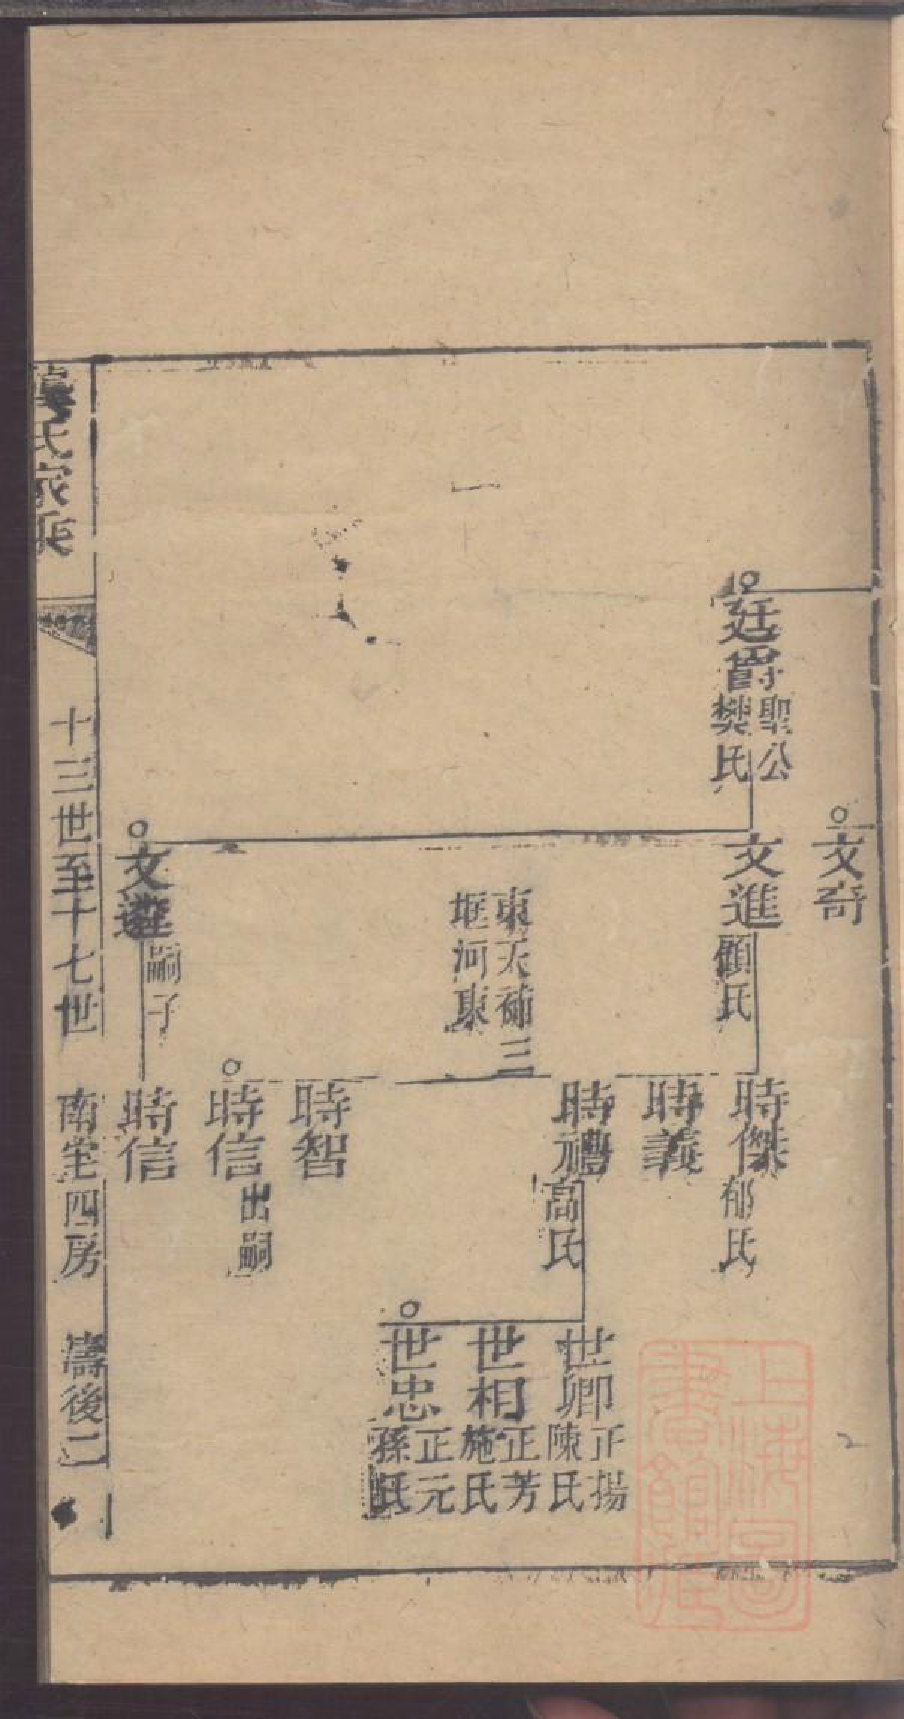 廷爵
聖公
樊氏
文奇
文進
顧氏
東天補三
堰河東
文遴
嗣子
時傑
郁氏
時義
時禮
高氏
時智
時信
出嗣
時信
世卿
正揚
陳氏
世相
正芳
施氏
世忠
正元
孫氏
龔氏家乘
十三世至十七世
南宅四房
濤後二
上海圖書館藏